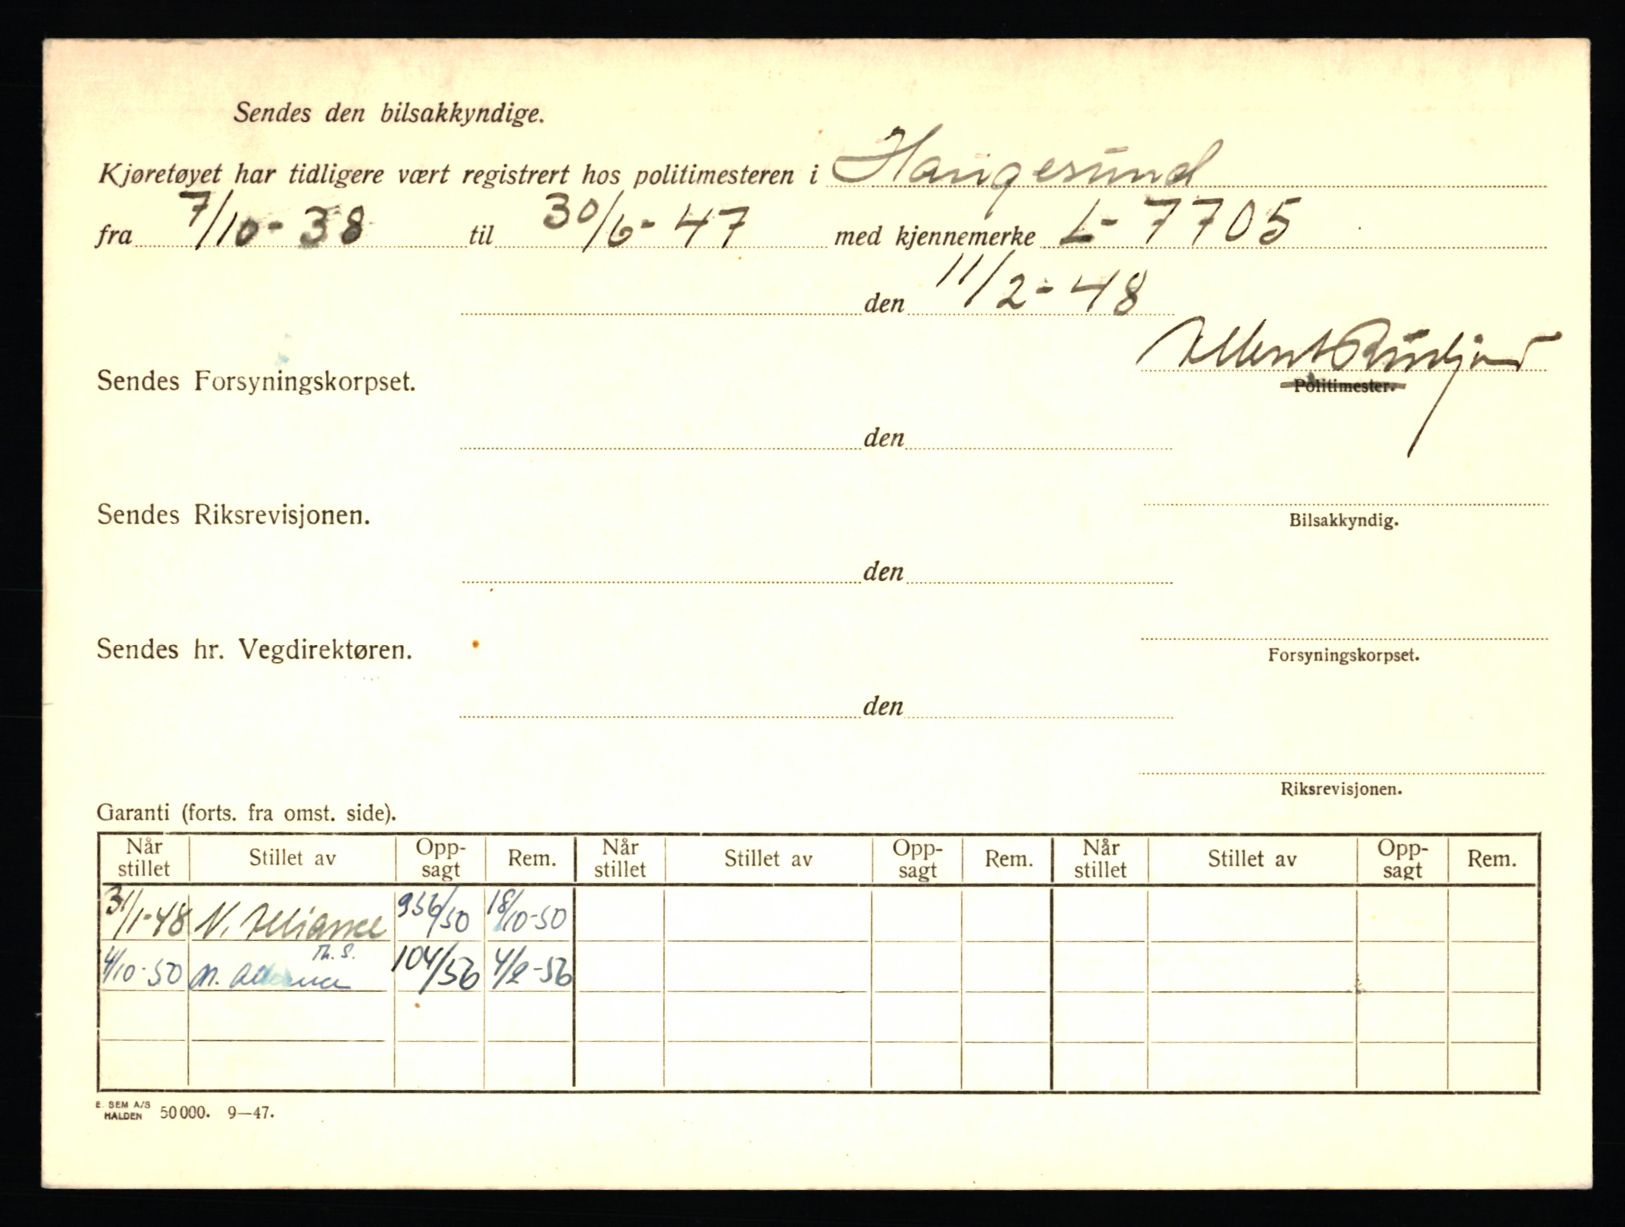 Sendes den bilsakkyndige.
Kjøretøyet har tidligere vært registrert hos politimesteren i Haugesund
fra 7/10-38 til 30/6-47 med kjennemerke L-7705
den 11/2-48
Sendes Forsyningskorpset.
Politimester.
den
Sendes Riksrevisjonen.
Bilsakkyndig.
den
Sendes hr. Vegdirektøren.
Forsyningskorpset.
den
Riksrevisjonen.
Garanti (forts. fra omst. side).
Når stillet Stillet av Opp-sagt Rem. Når stillet Stillet av Opp-sagt Rem. Når stillet Stillet av Opp-sagt Rem.
31/1-48 N. Alliance 956/50 18/10-50
Th. S.
4/10-50 N. 104/56 4/2-56
E. SEM A/S
HALDEN 50000. 9—47.